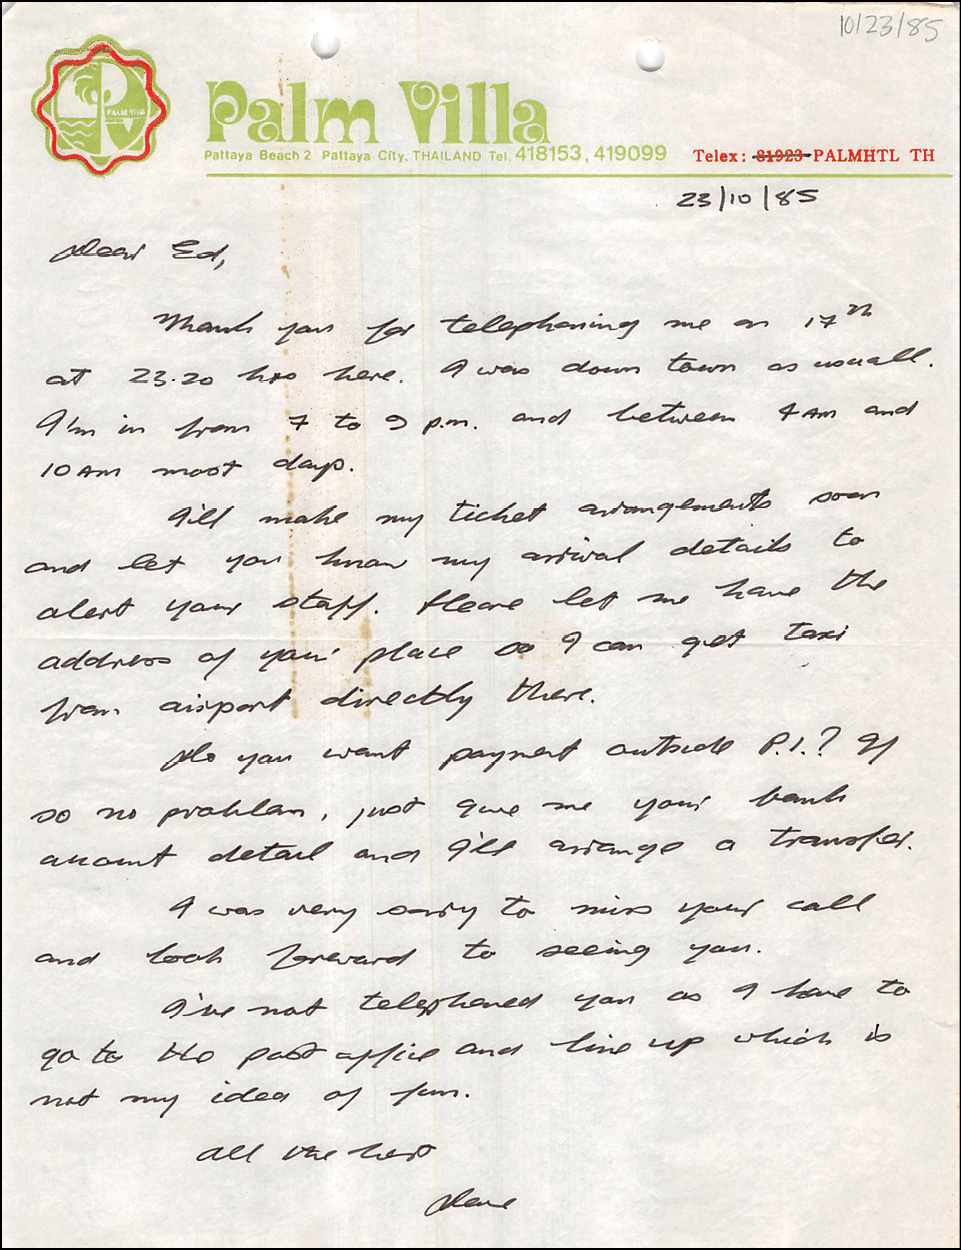 10/23/85
PALM VILLA
Palm Villa
Pattaya Beach 2 Pattaya City, THAILAND Tel. 418153, 419099 Telex: 81923 PALMHTL TH
23/10/85
Dear Ed,
Thank you for telephoning me on 17th
at 23.20 hrs here. I was down town as usuall.
I'm in from 7 to 9 p.m. and between 4 AM and
10 AM most days.
I'll make my ticket arrangements soon
and let you know my arrival details to
alert your staff. Please let me have the
address of your place so I can get taxi
from airport directly there.
Do you want payment outside P.I.? If
so no problem, just give me your bank
account detail and I'll arrange a transfer.
I was very sorry to miss your call
and look foreward to seeing you.
I've not telephoned you as I have to
go to the post office and line up which is
not my idea of fun.
All the best
Dave